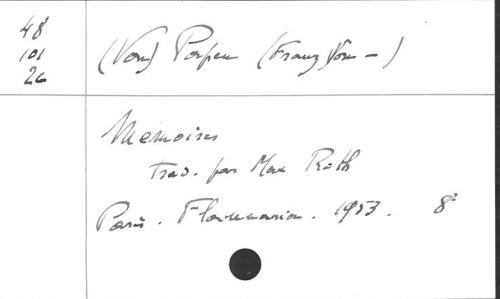 48
101
26
(Von) Papen (Franz Von –)
Memoires
Trad. par Max Roth
Paris. Flammarion. 1953. 8°